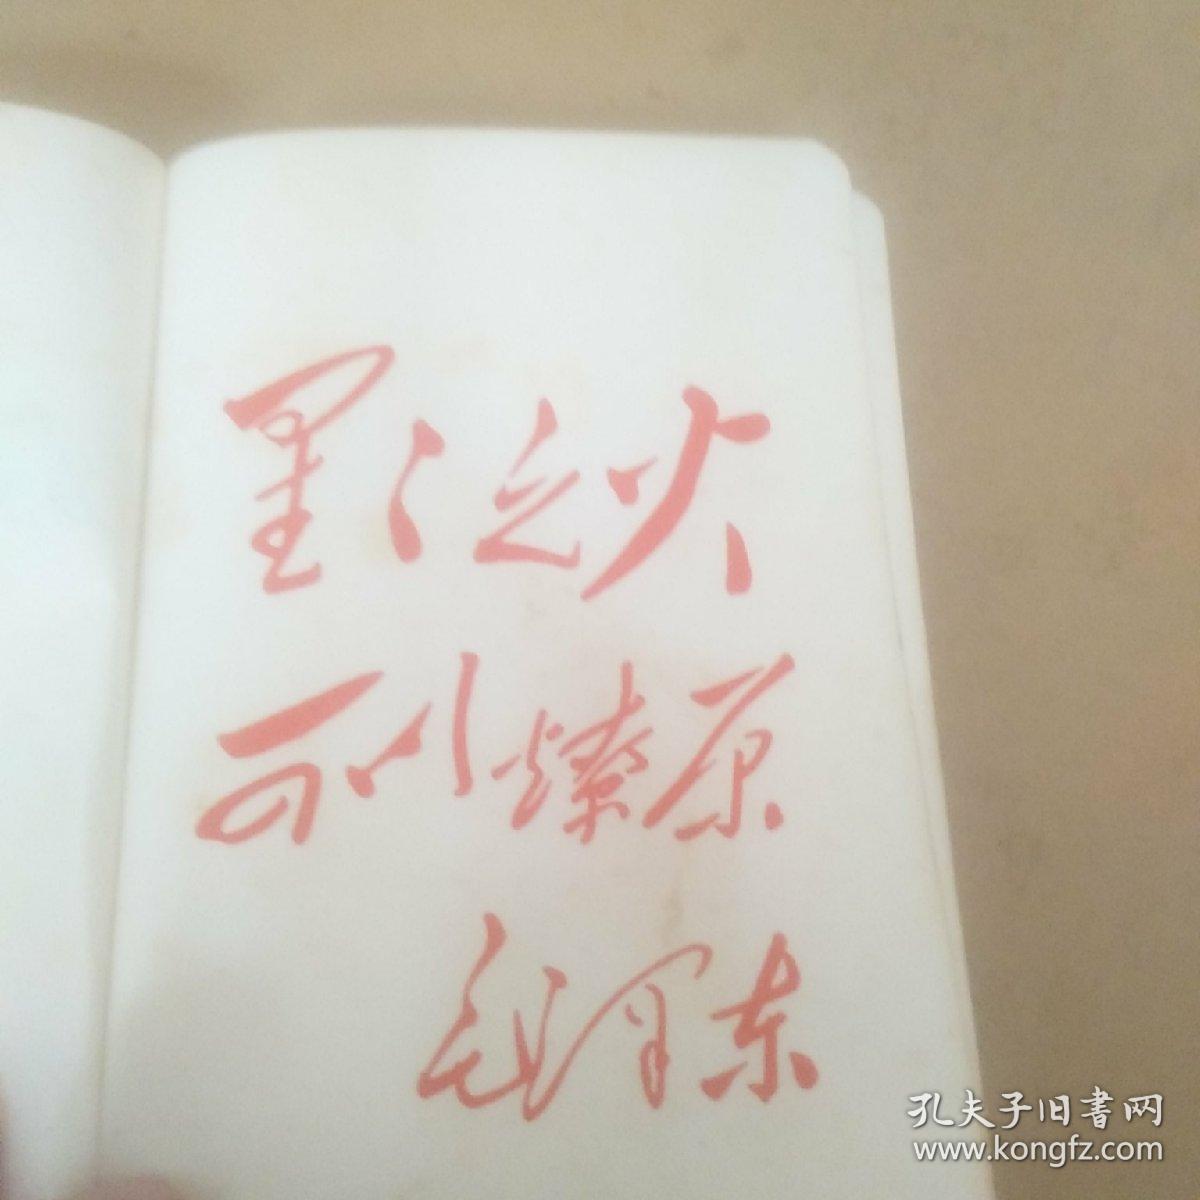 星星之火
可以燎原
毛泽东
孔夫子旧书网
www.kongfz.com